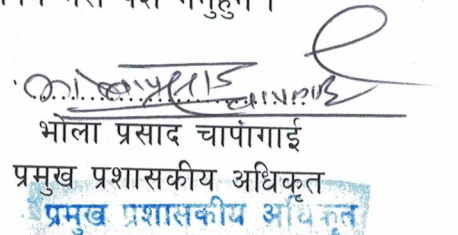 भोला प्रसाद चापागाई
प्रमुख प्रशासकीय अधिकृत
प्रमुख प्रशासकीय अधिकृत